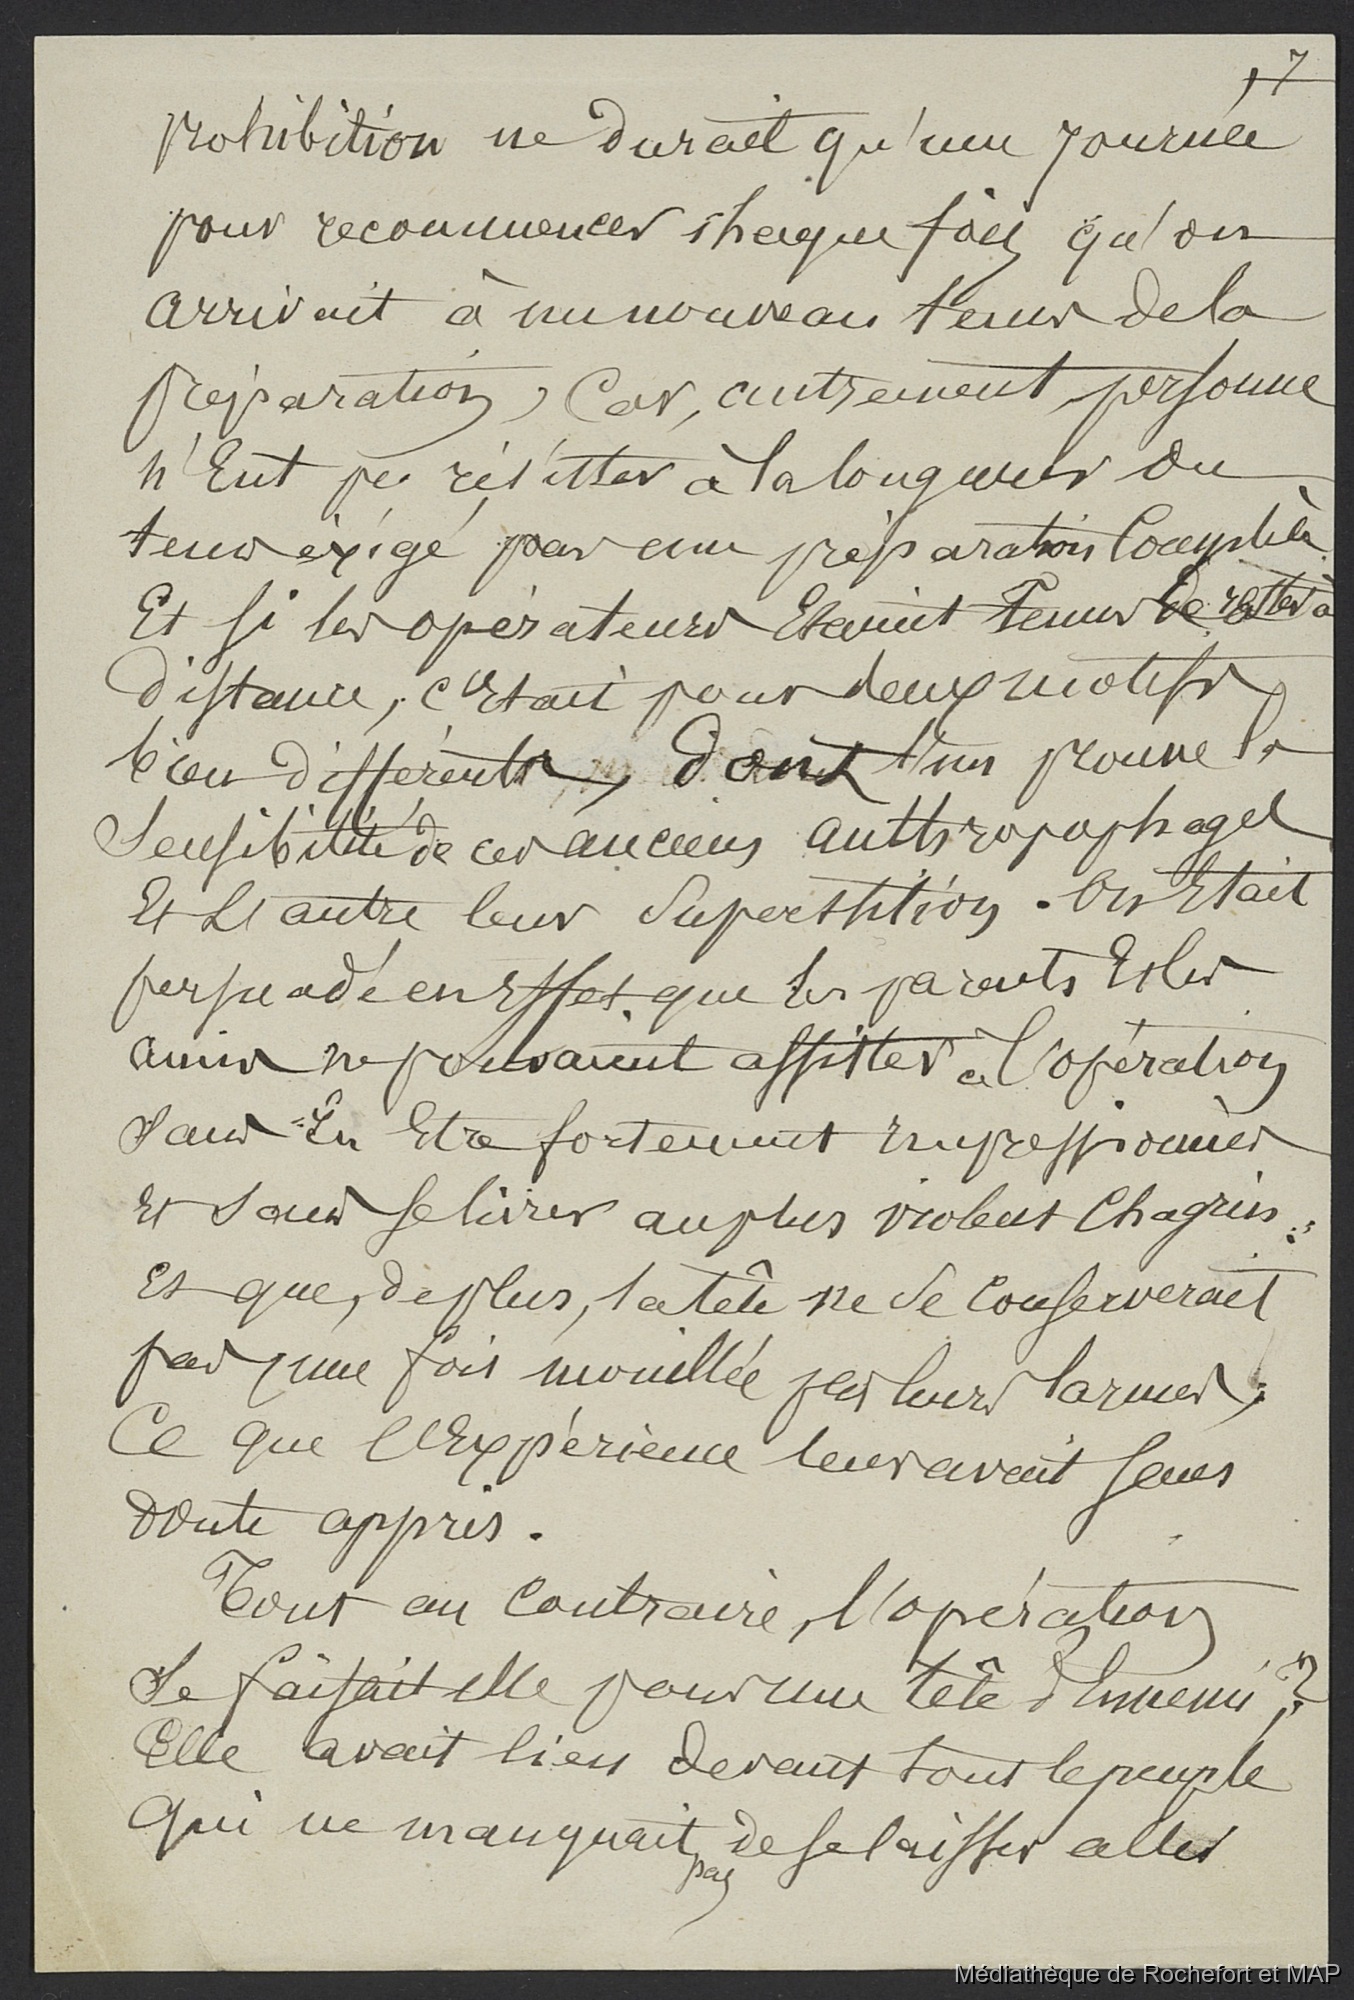 7
prohibition ne durait qu'une journée
pour recommencer chaque fois qu'on
arrivait à un nouveau tems de la
préparation, Car, autrement, personne
n'Eut pu résister à la longueur du
tems éxigé par une préparation Complète.
Et si les opérateurs Etaient Tenus de rester à
distance, c'Etait pour deux motifs
bien différents, dont l'un prouve la
Sensibilité de ces anciens anthropophages
Et L'autre leur Superstition. On Etait
persuadé en Effet que les parents Et les
amis ne pouvaient assister à l'opération
Sans En Etre fortement impressionnés
Et Sans se livrer au plus violent Chagrin;
Et que, de plus, la tête ne se Conserverait
pas, une fois mouillée par leurs larmes,
Ce que l'Expérience leur avait sans
doute appris.
Tout au Contraire, l'opération
se faisait elle pour une tête d'Ennemi?
Elle avait lieu devant tout le peuple
Qui ne manquait pas de se laisser aller
Médiathèque de Rochefort et MAP